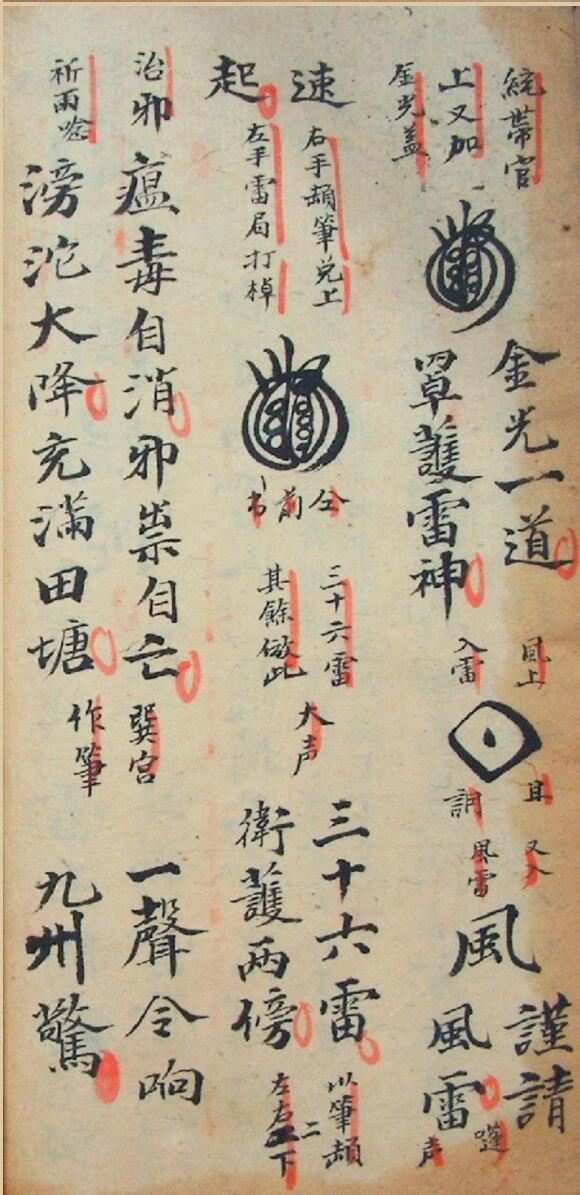 統帶官
上又加
金光蓋
金光一道
罩護雷神
風上
入雷
且
又入
風雷
風
謹請
風雷
声
速起
右手
筆兑上
左手雷局打棹
仝前书
三十六雷
其餘倣此
大声
三十六雷
衛護两傍
以筆
左右
下
治邪
瘟毒自消邪祟自亡
巽宮
一聲令响
祈雨念
滂沱大降充滿田塘
作筆
九州驚